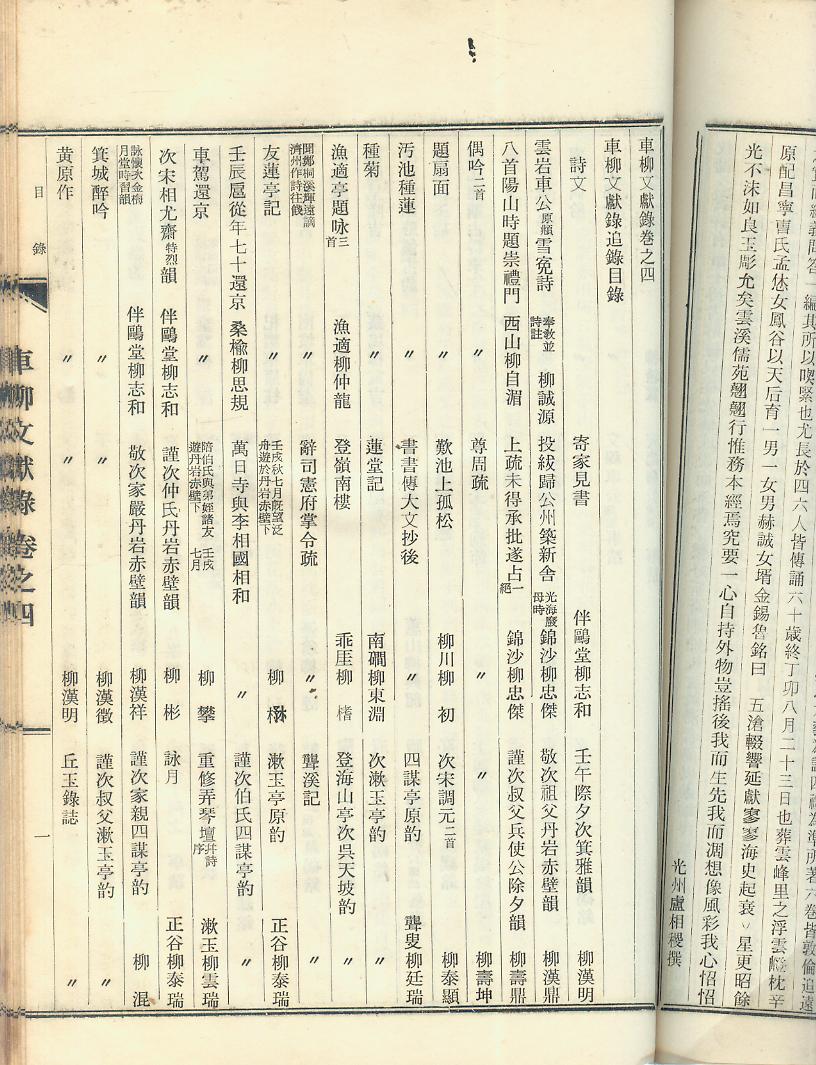 義問答一編其所以喫緊也尤長於四六人皆傳誦六十歲終丁卯八月二十三日也葬雲峰里之浮雲 枕辛
原配昌寧曺氏孟烋女鳳谷以天后育一男一女男赫誠女壻金錫魯銘曰　五滄輟響延獻寥寥海史起衰丷星更昭餘
光不沫如良玉彫允矣雲溪儒苑翹翹行惟務本經焉究要一心自持外物豈搖後我而生先我而凋想像風彩我心怊怊
光州盧相稷撰
車柳文獻錄卷之四
車柳文獻錄追錄目錄
詩文　寄家兒書　伴鷗堂柳志和　壬午際夕次箕雅韻　柳漢明
雲岩車公原頫雪寃詩　奉敎並詩註　柳誠源　投紱歸公州築新舍　光海廢母時　錦沙柳忠傑　敬次祖父丹岩赤壁韻　柳漢鼎
八首陽山時題崇禮門　西山柳自湄　上疏未得承批遂占一絕　錦沙柳忠傑　謹次叔父兵使公除夕韻　柳壽鼎
偶吟二首　〃　尊周疏　〃　〃　柳壽坤
題扇面　〃　歎池上孤松　柳川柳初　次宋調元二首　柳泰顯
汚池種蓮　〃　書書傳大文抄後　〃　四謀亭原韵　聾叟柳廷瑞
種菊　〃　蓮堂記　南磵柳東淵　次漱玉亭韵　〃
漁適亭題咏三首　漁適柳仲龍　登嶺南樓　乖厓柳楮　登海山亭次吳天坡韵　〃
聞鄭桐溪輝遠謫濟州作詩往餞　〃　辭司憲府掌令疏　〃　聾溪記　〃
友蓮亭記　〃　壬戌秋七月旣望泛舟遊於丹岩赤壁下　柳楙　漱玉亭原韵　正谷柳泰瑞
壬辰扈從年七十還京　桑楡柳思規　萬日寺與李相國相和　〃　謹次伯氏四謀亭韵　〃
車駕還京　〃　陪伯氏與弟姪諸友遊丹岩赤壁下　壬戌七月　柳攀　重修弄琴壇幷詩序　漱玉柳雲瑞
次宋相尤齋特烈韻　伴鷗堂柳志和　謹次仲氏丹岩赤壁韻　柳彬　詠月　正谷柳泰瑞
詠懷次金梅月堂時習韻　伴鷗堂柳志和　敬次家嚴丹岩赤壁韻　柳漢祥　謹次家親四謀亭韵　柳混
箕城醉吟　〃　〃　柳漢徵　謹次叔父漱玉亭韵　〃
黃原作　〃　〃　柳漢明　丘玉錄誌　〃
目錄
車柳文獻錄卷之四
一